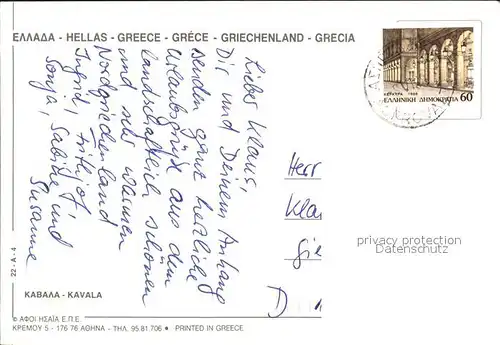 ΕΛΛΑΔΑ - HELLAS - GREECE - GRÉCE - GRIECHENLAND - GRECIA
ΚΕΡΚΥΡΑ 1988
ΕΛΛΗΝΙΚΗ ΔΗΜΟΚΡΑΤΙΑ 60
Lieber Klaus,
Dir und Deinem Anhang
senden ganz herzliche
Urlaubsgrüße aus dem
landschaftlich schönen
und sehr warmen
Nordgriechenland
Ingrid, Frithjof,
Sonja, Sabine und
Susanne
Herr
Kla
Gie
D
privacy protection
Datenschutz
22 - A - 4
ΚΑΒΑΛΑ - KAVALA
© ΑΦΟΙ ΗΣΑΪΑ Ε.Π.Ε.
ΚΡΕΜΟΥ 5 - 176 76 ΑΘΗΝΑ - ΤΗΛ. 95.81.706 • PRINTED IN GREECE